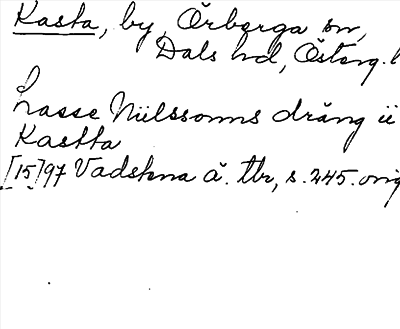 Kasta, by, Örberga sn,
Dals hd, Österg. l
Lasse Niilssonns dräng ii
Kastta
[15]97 Vadstena ä. tbr, s. 245. orig